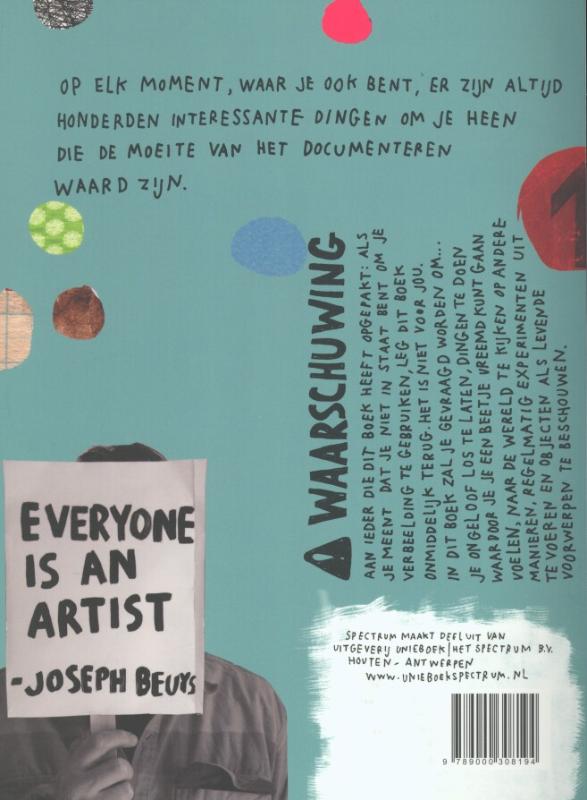 OP ELK MOMENT, WAAR JE OOK BENT, ER ZIJN ALTIJD
HONDERDEN INTERESSANTE DINGEN OM JE HEEN
DIE DE MOEITE VAN HET DOCUMENTEREN
WAARD ZIJN.
WAARSCHUWING
AAN IEDER DIE DIT BOEK HEEFT OPGEPAKT: ALS
JE MEENT DAT JE NIET IN STAAT BENT OM JE
VERBEELDING TE GEBRUIKEN, LEG DIT BOEK
ONMIDDELIJK TERUG. HET IS NIET VOOR JOU.
IN DIT BOEK ZAL JE GEVRAAGD WORDEN OM...
JE ONGELOOF LOS TE LATEN, DINGEN TE DOEN
WAARDOOR JE JE EEN BEETJE VREEMD KUNT GAAN
VOELEN, NAAR DE WERELD TE KIJKEN OP ANDERE
MANIEREN, REGELMATIG EXPERIMENTEN UIT
TE VOEREN EN OBJECTEN ALS LEVENDE
VOORWERPEN TE BESCHOUWEN.
EVERYONE
IS AN
ARTIST
-JOSEPH BEUYS
SPECTRUM MAAKT DEEL UIT VAN
UITGEVERIJ UNIEBOEK | HET SPECTRUM B.V.
HOUTEN - ANTWERPEN
WWW.UNIEBOEKSPECTRUM.NL
9 789000 308194